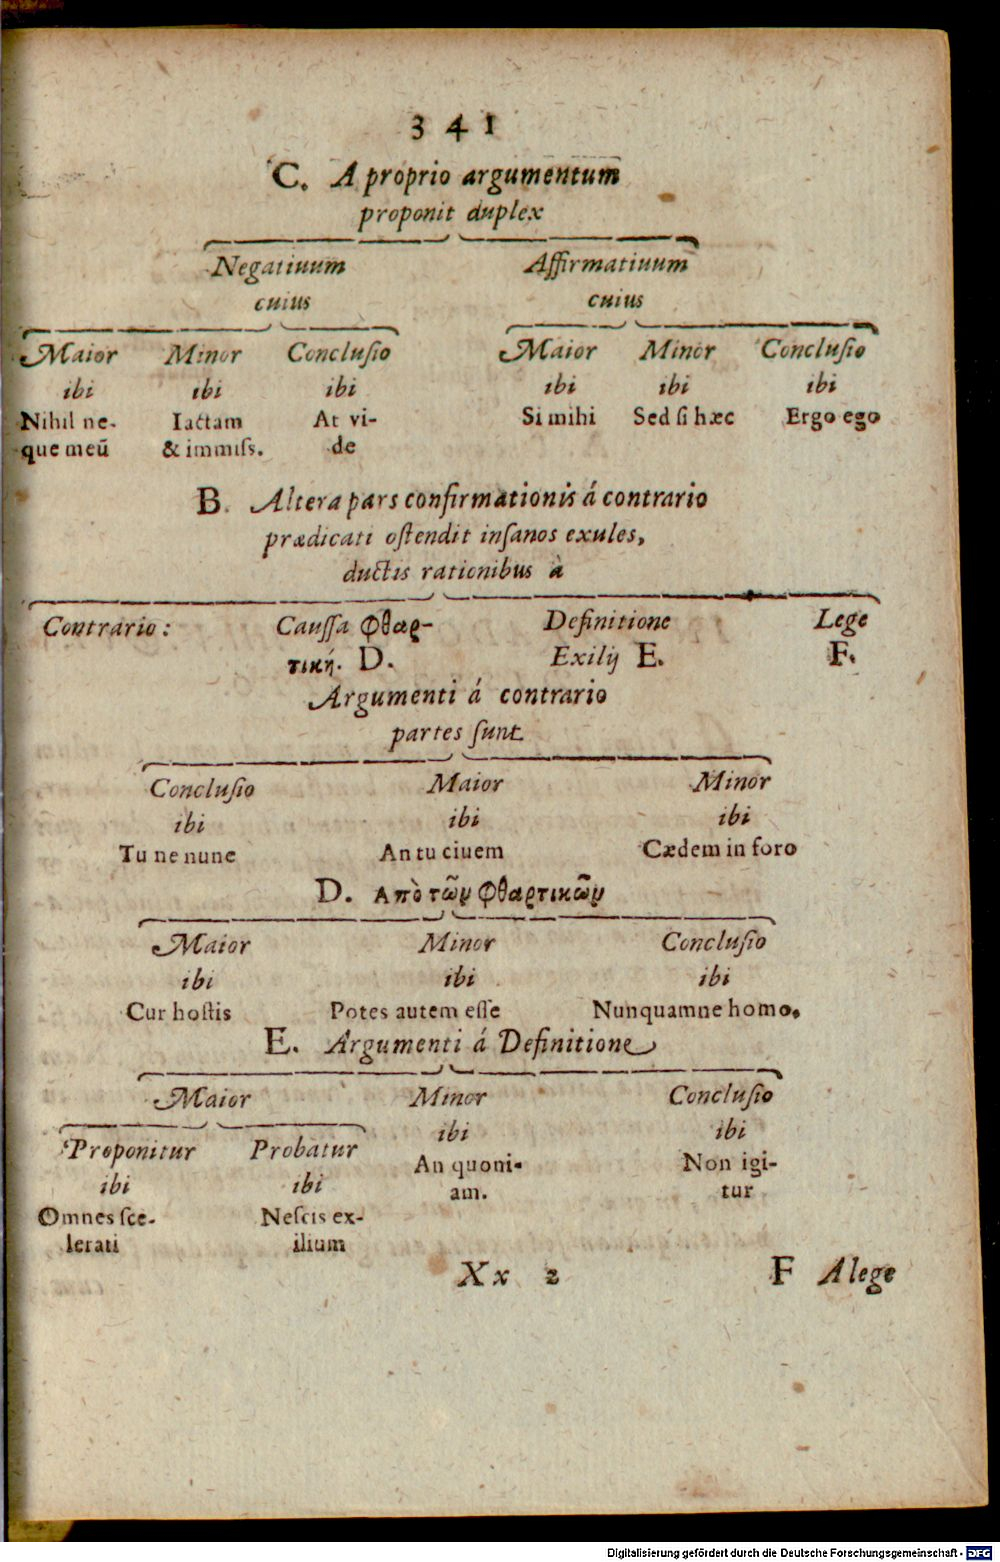 341
C. A proprio argumentum
proponit duplex
Negatiuum Affirmatiuum
cuius cuius
Maior Minor Conclusio Maior Minor Conclusio
ibi ibi ibi ibi ibi ibi
Nihil ne- Iactam At vi- Si mihi Sed si hæc Ergo ego
que meū & immiss. de
B. Altera pars confirmationis á contrario
prædicati ostendit insanos exules,
ductis rationibus à
Contrario: Caussa Φθαρ- Definitione Lege
τική. D. Exilij E. F.
Argumenti á contrario
partes sunt.
Conclusio Maior Minor
ibi ibi ibi
Tu ne nunc An tu ciuem Cædem in foro
D. Ἀπὸ τῶν Φθαρτικῶν
Maior Minor Conclusio
ibi ibi ibi
Cur hostis Potes autem esse Nunquamne homo.
E. Argumenti á Definitione
Maior Minor Conclusio
Proponitur Probatur ibi ibi
ibi ibi An quoni- Non igi-
Omnes sce- Nescis ex- am. tur
lerati ilium
Xx 2 F A lege
Digitalisierung gefördert durch die Deutsche Forschungsgemeinschaft - DFG